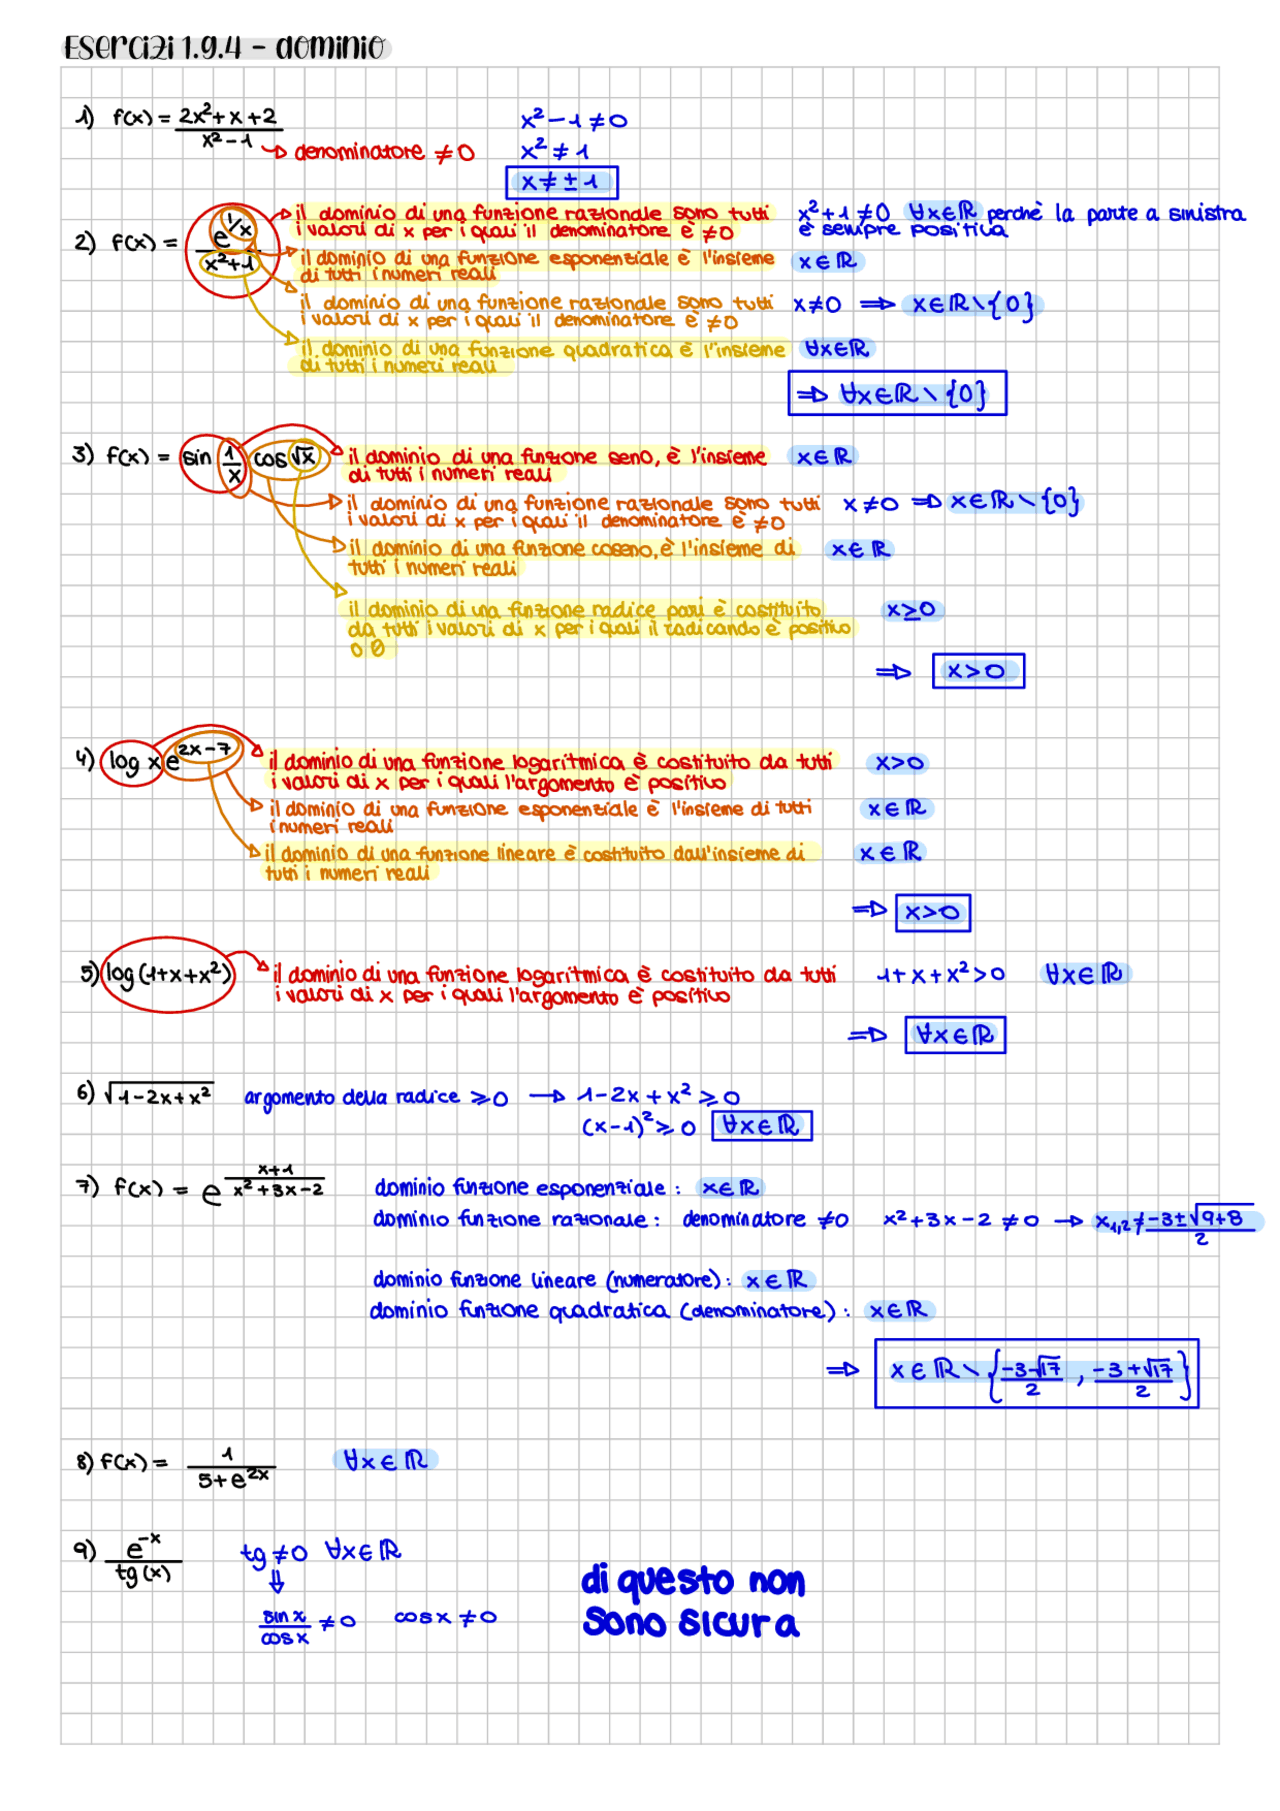 Esercizi 1.9.4 - dominio
1) f(x) = (2x²+x+2)/(x²-1) → denominatore ≠0
x²-1≠0
x²≠1
x≠±1
2) f(x) = e^(1/x)/(x²+1)
il dominio di una funzione razionale sono tutti
i valori di x per i quali il denominatore è ≠0
x²+1≠0 ∀x∈ℝ perchè la parte a sinistra
è sempre positiva
il dominio di una funzione esponenziale è l'insieme
di tutti i numeri reali
x∈ℝ
il dominio di una funzione razionale sono tutti
i valori di x per i quali il denominatore è ≠0
x≠0 ⇒ x∈ℝ∖{0}
il dominio di una funzione quadratica è l'insieme
di tutti i numeri reali
∀x∈ℝ
⇒ ∀x∈ℝ∖{0}
3) f(x) = sin 1/x cos √x
il dominio di una funzione seno, è l'insieme
di tutti i numeri reali
x∈ℝ
il dominio di una funzione razionale sono tutti
i valori di x per i quali il denominatore è ≠0
x≠0 ⇒ x∈ℝ∖{0}
il dominio di una funzione coseno, è l'insieme di
tutti i numeri reali
x∈ℝ
il dominio di una funzione radice pari è costituito
da tutti i valori di x per i quali il radicando è positivo
o 0
x≥0
⇒ x>0
4) log x e^(2x-7)
il dominio di una funzione logaritmica è costituito da tutti
i valori di x per i quali l'argomento è positivo
x>0
il dominio di una funzione esponenziale è l'insieme di tutti
i numeri reali
x∈ℝ
il dominio di una funzione lineare è costituito dall'insieme di
tutti i numeri reali
x∈ℝ
⇒ x>0
5) log(1+x+x²)
il dominio di una funzione logaritmica è costituito da tutti
i valori di x per i quali l'argomento è positivo
1+x+x²>0 ∀x∈ℝ
⇒ ∀x∈ℝ
6) √(1-2x+x²) argomento della radice ≥0 → 1-2x+x²≥0
(x-1)²≥0 ∀x∈ℝ
7) f(x) = e^((x+1)/(x²+3x-2))
dominio funzione esponenziale: x∈ℝ
dominio funzione razionale: denominatore ≠0 x²+3x-2≠0 → x₁,₂≠(-3±√(9+8))/2
dominio funzione lineare (numeratore): x∈ℝ
dominio funzione quadratica (denominatore): x∈ℝ
⇒ x∈ℝ∖{(-3-√17)/2, (-3+√17)/2}
8) f(x) = 1/(5+e^(2x)) ∀x∈ℝ
9) e^(-x)/tg(x) tg≠0 ∀x∈ℝ
⇓
sin x/cos x ≠0 cos x≠0
di questo non
sono sicura